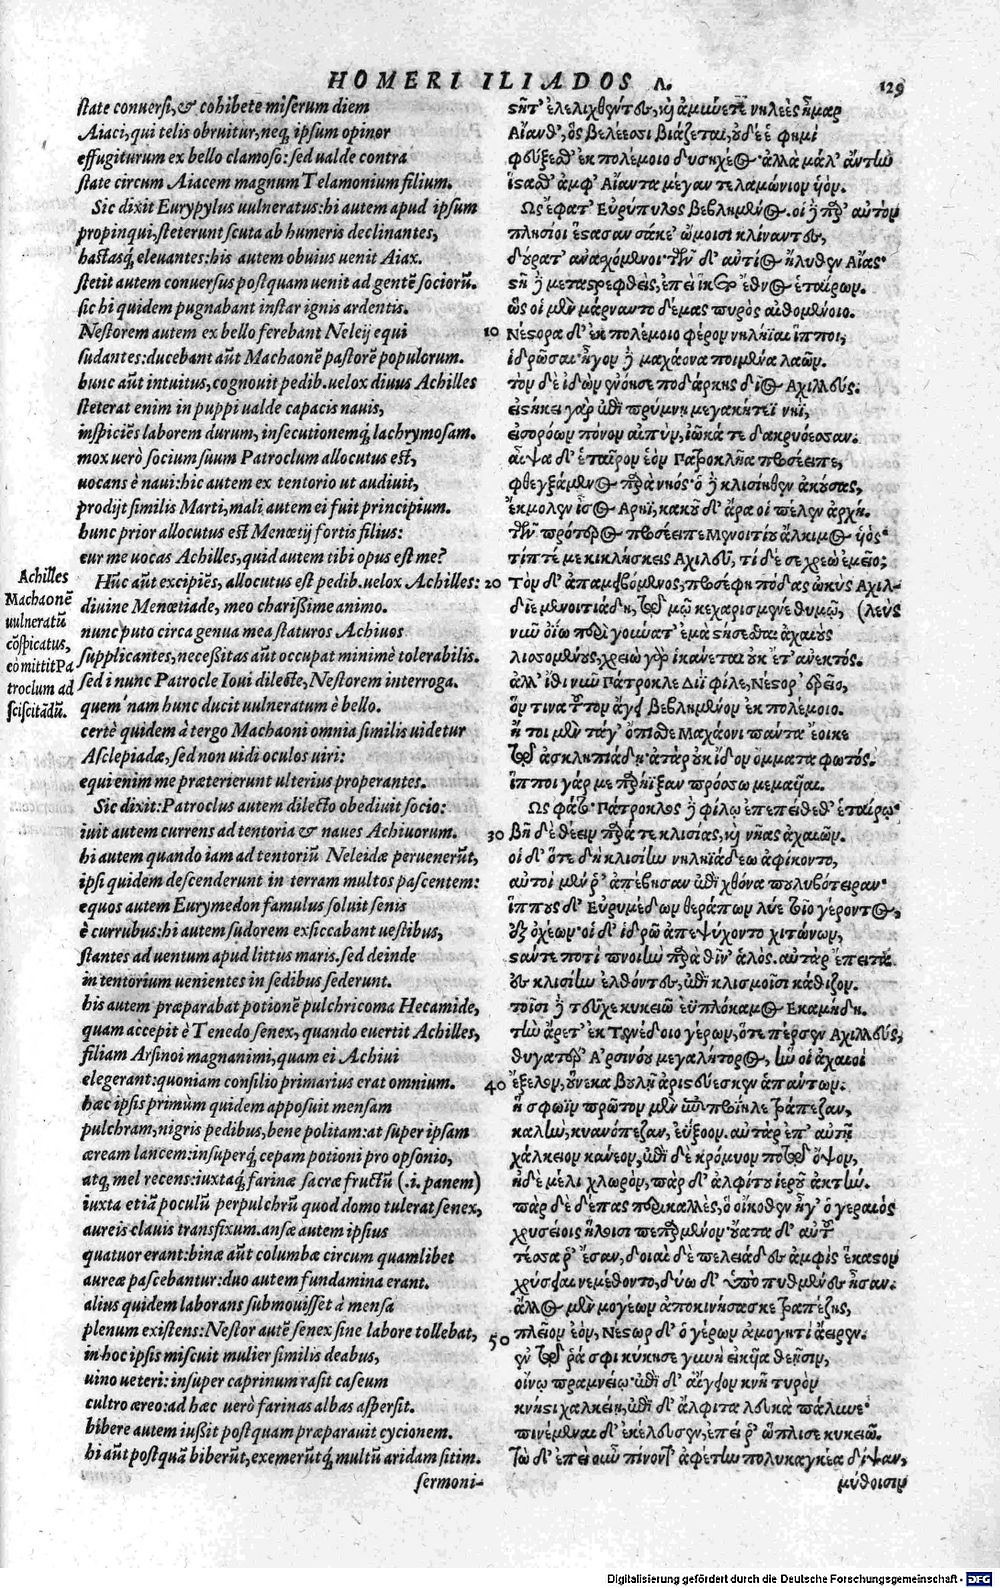 HOMERI ILIADOS Λ. 129
ſtate conuerſi, & cohibete miſerum diem
Aiaci, qui telis obruitur, neq; ipſum opinor
effugiturum ex bello clamoſo: ſed ualde contra
ſtate circum Aiacem magnum Telamonium filium.
Sic dixit Eurypylus uulneratus: hi autem apud ipſum
propinqui, ſteterunt ſcuta ab humeris declinantes,
haſtasq; eleuantes: his autem obuius uenit Aiax.
ſtetit autem conuerſus poſtquam uenit ad gentẽ ſociorũ.
ſic hi quidem pugnabant inſtar ignis ardentis.
Neſtorem autem ex bello ferebant Neleij equi
ſudantes: ducebant aũt Machaonẽ paſtorẽ populorum.
hunc aũt intuitus, cognouit pedib. uelox diuus Achilles
ſteterat enim in puppi ualde capacis nauis,
inſpiciẽs laborem durum, inſecutionemq; lachrymoſam.
mox uerò ſocium ſuum Patroclum allocutus eſt,
uocans è naui: hic autem ex tentorio ut audiuit,
prodijt ſimilis Marti, mali autem ei fuit principium.
hunc prior allocutus eſt Menœtij fortis filius:
cur me uocas Achilles, quid autem tibi opus eſt me?
Hũc aũt excipiẽs, allocutus eſt pedib. uelox Achilles:
diuine Menœtiade, meo chariſſime animo.
nunc puto circa genua mea ſtaturos Achiuos
ſupplicantes, neceſſitas aũt occupat minimè tolerabilis.
ſed i nunc Patrocle Ioui dilecte, Neſtorem interroga.
quem nam hunc ducit uulneratum è bello.
certè quidem à tergo Machaoni omnia ſimilis uidetur
Aſclepiadæ, ſed non uidi oculos uiri:
equi enim me præterierunt ulterius properantes.
Sic dixit: Patroclus autem dilecto obediuit ſocio:
iuit autem currens ad tentoria & naues Achiuorum.
hi autem quando iam ad tentoriũ Neleidæ peruenerũt,
ipſi quidem deſcenderunt in terram multos paſcentem:
equos autem Eurymedon famulus ſoluit ſenis
è curribus: hi autem ſudorem exſiccabant ueſtibus,
ſtantes ad uentum apud littus maris. ſed deinde
in tentorium uenientes in ſedibus ſederunt.
his autem præparabat potionẽ pulchricoma Hecamide,
quam accepit è Tenedo ſenex, quando euertit Achilles,
filiam Arſinoi magnanimi, quam ei Achiui
elegerant: quoniam conſilio primarius erat omnium.
hæc ipſis primùm quidem appoſuit menſam
pulchram, nigris pedibus, bene politam: at ſuper ipſam
æream lancem: inſuperq; cepam potioni pro opſonio,
atq; mel recens: iuxtaq; farinæ ſacræ fructũ (.i. panem)
iuxta etiã poculũ perpulchrũ quod domo tulerat ſenex,
aureis clauis transfixum. anſæ autem ipſius
quatuor erant: binæ aũt columbæ circum quamlibet
aureæ paſcebantur: duo autem fundamina erant.
alius quidem laborans ſubmouiſſet à menſa
plenum exiſtens: Neſtor autẽ ſenex ſine labore tollebat,
in hoc ipſis miſcuit mulier ſimilis deabus,
uino ueteri: inſuper caprinum raſit caſeum
cultro æreo: ad hæc uerò farinas albas aſperſit.
bibere autem iuſſit poſtquam præparauit cycionem.
hi aũt poſtquã biberũt, exemerũtq; multũ aridam ſitim.
ſermoni-
Achilles
Machaonẽ
uulneratũ
cõſpicatus,
eò mittit Pa
troclum ad
ſciſcitãdũ.
10
20
30
40
50
στῆτ' ἐλελιχθέντες, καὶ ἀμύνετε νηλεὲς ἦμαρ
Αἴανθ', ὃς βελέεσσι βιάζεται, οὐδέ ἑ φημὶ
φεύξεσθ' ἐκ πολέμοιο δυσηχέος· ἀλλὰ μάλ' ἄντην
ἵστασθ' ἀμφ' Αἴαντα μέγαν τελαμώνιον υἱόν.
Ὣς ἔφατ' Εὐρύπυλος βεβλημένος. οἱ δὲ παρ' αὐτὸν
πλησίοι ἔστασαν σάκε' ὤμοισι κλίναντες,
δούρατ' ἀνασχόμενοι· τῶν δ' αὐτίος ἤλυθεν Αἴας·
στῆ δὲ μεταστρεφθεὶς, ἐπεὶ ἵκετο ἔθνος ἑταίρων.
ὣς οἱ μὲν μάρναντο δέμας πυρὸς αἰθομένοιο.
Νέστορα δ' ἐκ πολέμοιο φέρον νηλήϊαι ἵπποι,
ἱδρῶσαι· ἦγον δὲ μαχάονα ποιμένα λαῶν.
τὸν δὲ ἰδὼν ἐνόησε ποδάρκης δῖος Αχιλλεύς·
εἱστήκει γὰρ ἐπὶ πρύμνῃ μεγακήτεϊ νηῒ,
εἰσορόων πόνον αἰπὺν, ἰῶκά τε δακρυόεσσαν.
αἶψα δ' ἑταῖρον ἑὸν Πατροκλῆα προσέειπε,
φθεγξάμενος παρὰ νηός· ὁ δὲ κλισίηθεν ἀκούσας,
ἔκμολεν ἶσος Αρηϊ, κακοῦ δ' ἄρα οἱ πέλεν ἀρχή.
τὸν πρότερος προσέειπε Μενοιτίου ἄλκιμος υἱός·
τίπτέ με κικλήσκεις Αχιλεῦ, τί δέ σε χρεὼ ἐμεῖο;
Τὸν δ' ἀπαμειβόμενος, προσέφη πόδας ὠκὺς Αχιλ-
δῖε μενοιτιάδη, τῷ μῷ κεχαρισμένε θυμῷ, (λεύς
νῦν ὀΐω περὶ γούνατ' ἐμὰ στήσεσθαι ἀχαιοὺς
λισσομένους, χρειὼ γὰρ ἱκάνεται οὐκ ἔτ' ἀνεκτός.
ἀλλ' ἴθι νῦν Πάτροκλε Διῒ φίλε, Νέστορ' ἔρειο,
ὅν τινα τοῦτον ἄγει βεβλημένον ἐκ πολέμοιο.
ἤ τοι μὲν τάγ' ὄπισθε Μαχάονι πάντα ἔοικε
τῷ ἀσκληπιάδῃ· ἀτὰρ οὐκ ἴδον ὄμματα φωτός.
ἵπποι γάρ με παρήϊξαν πρόσσω μεμαυῖαι.
Ὣς φάτο· Πάτροκλος δὲ φίλῳ ἐπεπείθεθ' ἑταίρῳ·
βῆ δὲ θέειν παρά τε κλισίας, καὶ νῆας ἀχαιῶν.
οἱ δ' ὅτε δὴ κλισίην νηληϊάδεω ἀφίκοντο,
αὐτοὶ μέν ῥ' ἀπέβησαν ἐπὶ χθόνα πουλυβότειραν·
ἵππους δ' Εὐρυμέδων θεράπων λύε τοῖο γέροντος,
ἐξ ὀχέων· οἱ δ' ἱδρῶ ἀπεψύχοντο χιτώνων,
στάντε ποτὶ πνοιὴν παρὰ θῖν' ἁλός. αὐτὰρ ἔπειτα
ἐς κλισίην ἐλθόντες, ἐπὶ κλισμοῖσι κάθιζον.
τοῖσι δὲ τεῦχε κυκειῶ ἐϋπλόκαμος Εκαμήδη.
τὴν ἄρετ' ἐκ Τενέδοιο γέρων, ὅτε πέρσεν Αχιλλεύς,
θυγατέρ' Αρσινόου μεγαλήτορος, ἣν οἱ ἀχαιοὶ
ἔξελον, οὕνεκα βουλῇ ἀριστεύεσκεν ἁπάντων.
ἥ σφωϊν πρῶτον μὲν ἐπιπροΐηλε τράπεζαν,
καλὴν, κυανόπεζαν, ἐΰξοον. αὐτὰρ ἐπ' αὐτῇ
χάλκειον κάνεον, ἐπὶ δὲ κρόμυον ποτῷ ὄψον,
ἠδὲ μέλι χλωρὸν, παρ δ' ἀλφίτου ἱεροῦ ἀκτήν.
παρ δὲ δέπας περικαλλὲς, ὃ οἴκοθεν ἦγ' ὁ γεραιὸς
χρυσείοις ἥλοισι πεπαρμένον· οὔατα δ' αὐτοῦ
τέσσαρ' ἔσαν, δοιαὶ δὲ πελειάδες ἀμφὶς ἕκαστον
χρύσειαι νεμέθοντο, δύω δ' ὑπὸ πυθμένες ἦσαν.
ἄλλος μὲν μογέων ἀποκινήσασκε τραπέζης,
πλεῖον ἐὸν, Νέστωρ δ' ὁ γέρων ἀμογητὶ ἄειρεν.
ἐν τῷ ῥά σφι κύκησε γυνὴ εἰκυῖα θεῇσιν,
οἴνῳ πραμνείῳ· ἐπὶ δ' αἴγειον κνῆ τυρὸν
κνήστι χαλκείῃ, ἐπὶ δ' ἄλφιτα λευκὰ πάλυνε·
πινέμεναι δ' ἐκέλευσεν, ἐπεί ῥ' ὥπλισε κυκειῶ.
τὼ δ' ἐπεὶ οὖν πίνοντ' ἀφέτην πολυκαγκέα δίψαν,
μύθοισιν
Digitalisierung gefördert durch die Deutsche Forschungsgemeinschaft - DFG